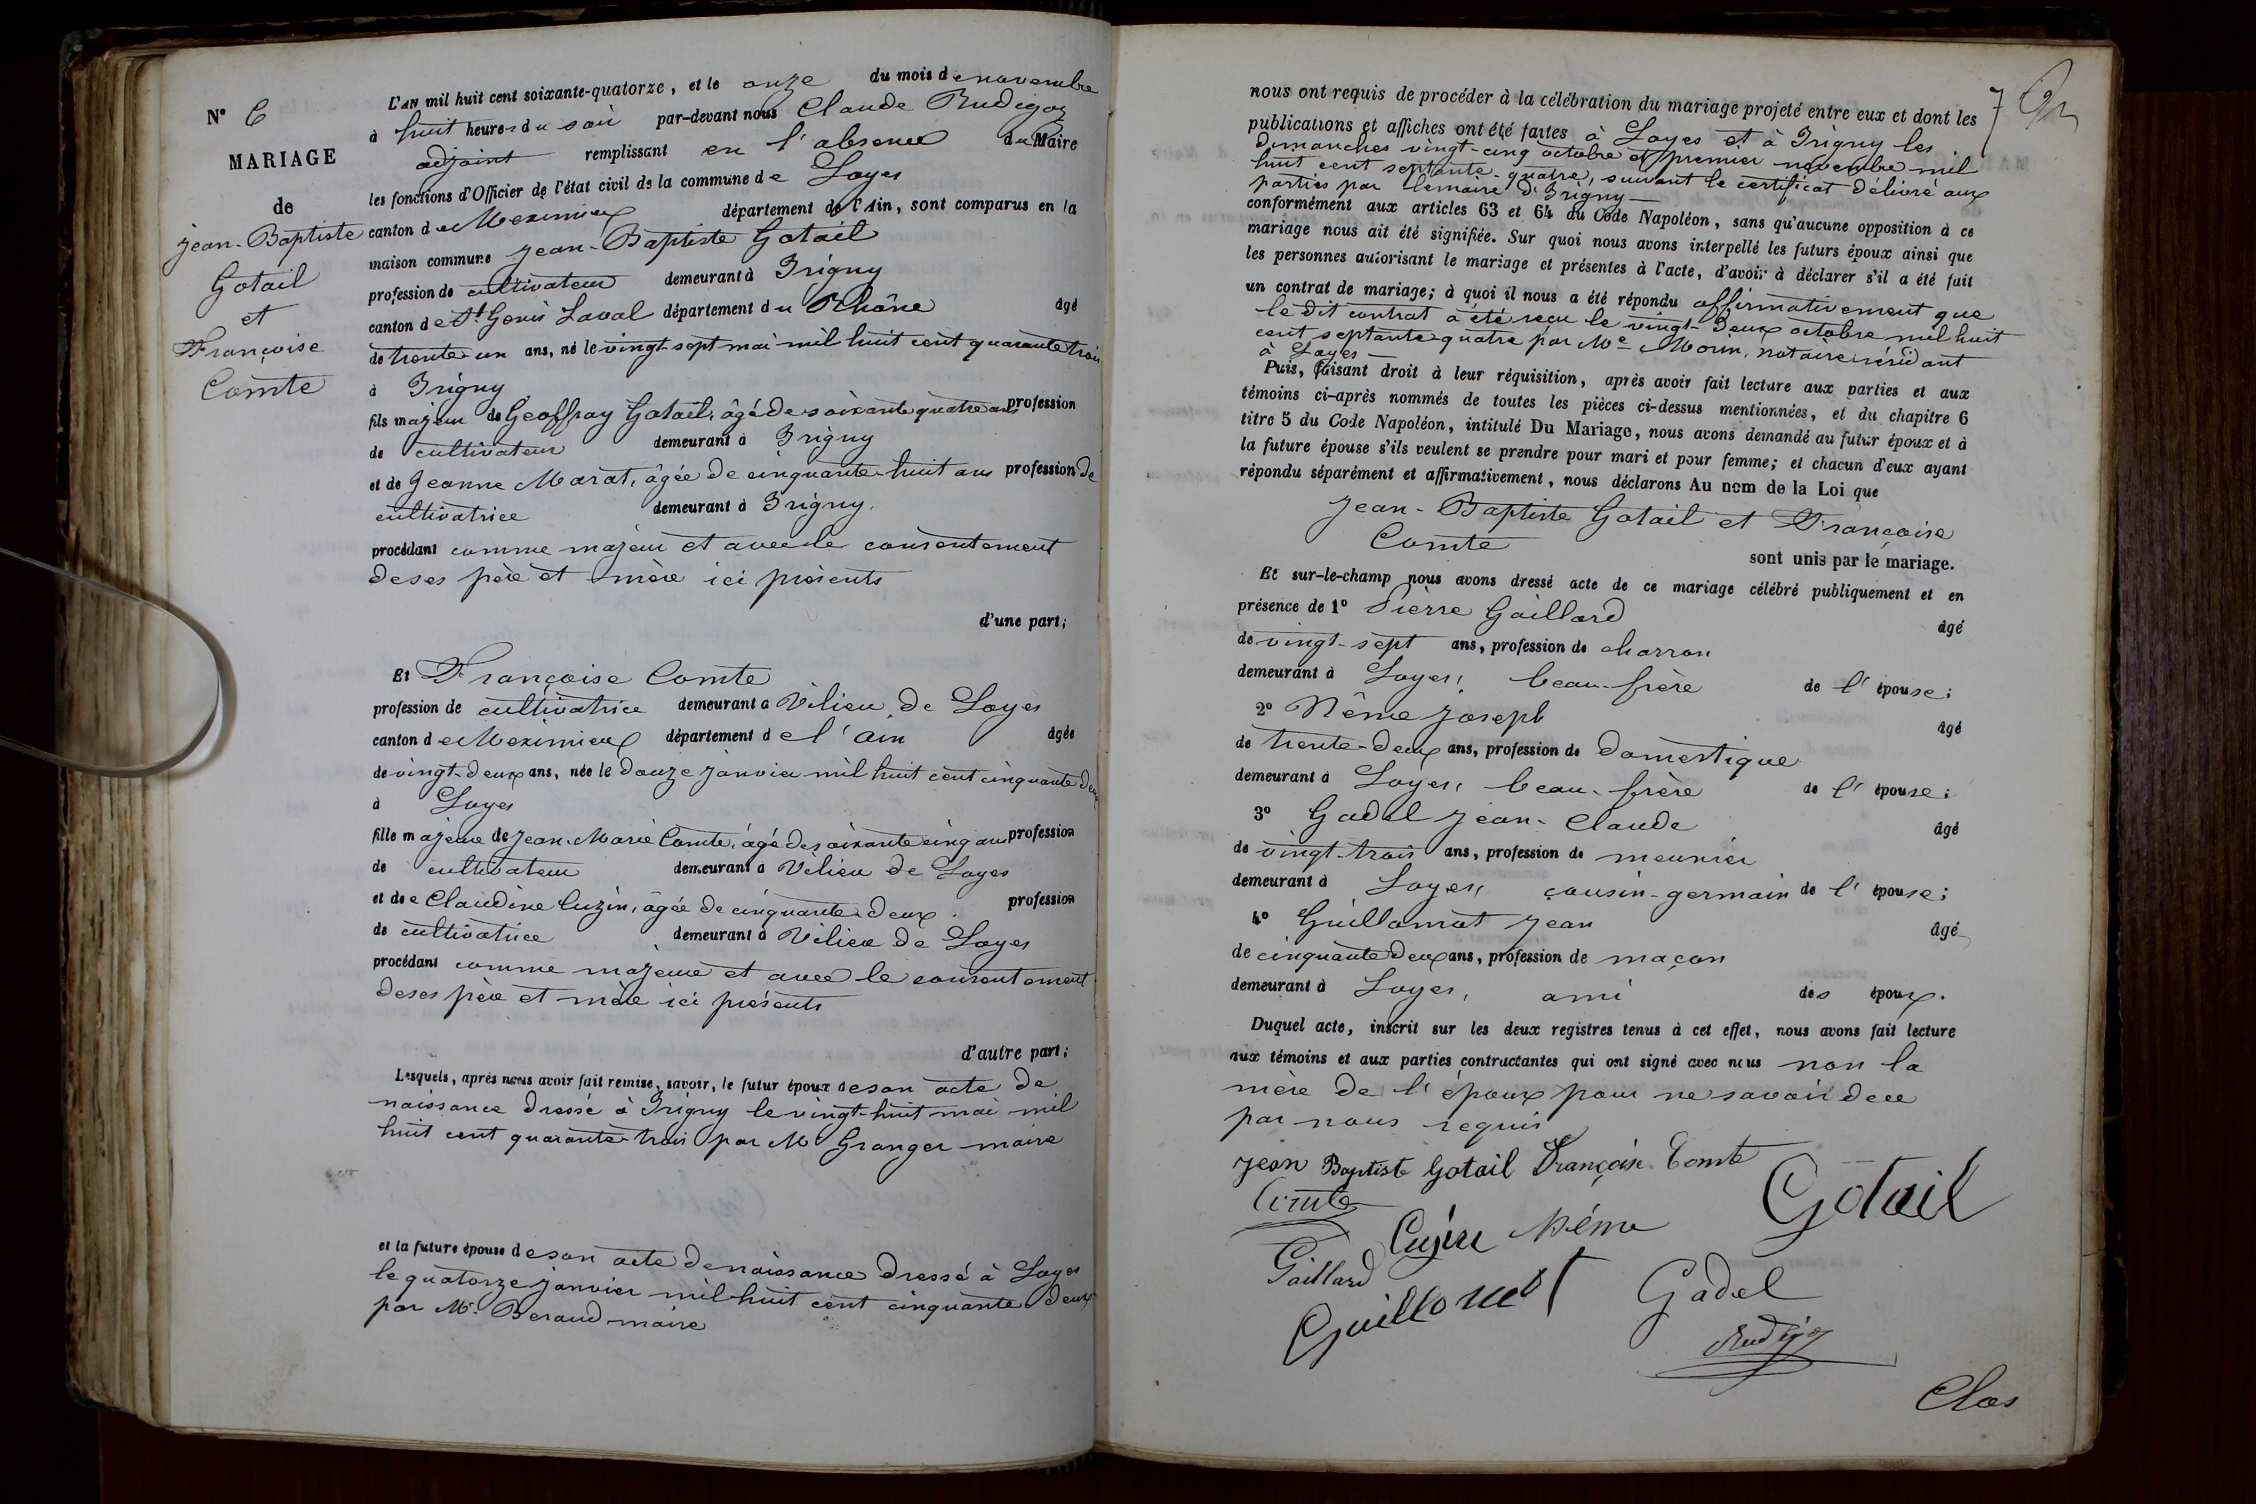 N° 6
MARIAGE
de
Jean-Baptiste
Gotail
et
Françoise
Comte
L'AN mil huit cent soixante-quatorze, et le onze du mois de novembre
à huit heures du soir par-devant nous Claude Rudigoz
adjoint remplissant en l'absence du Maire
les fonctions d'Officier de l'état civil de la commune de Loyes
canton de Meximieux département de l'Ain, sont comparus en la
maison commune Jean-Baptiste Gotail
profession de cultivateur demeurant à Irigny
canton de St Genis Laval département du Rhône âgé
de trente-un ans, né le vingt-sept mai mil huit cent quarante trois
à Irigny
fils majeur de Geoffray Gotail, âgé de soixante quatre ans profession
de cultivateur demeurant à Irigny
et de Jeanne Marat, âgée de cinquante-huit ans profession de
cultivatrice demeurant à Irigny.
procédant comme majeur et avec le consentement
de ses père et mère ici présents
d'une part;
Et Françoise Comte
profession de cultivatrice demeurant à Vilieu de Loyes
canton de Meximieux département de l'ain âgée
de vingt-deux ans, née le douze janvier mil huit cent cinquante deux
à Loyes
fille majeure de Jean-Marie Comte, âgé de soixante cinq ans profession
de cultivateur demeurant à Vilieu de Loyes
et de Claudine Cuzin, âgée de cinquante-deux profession
de cultivatrice demeurant à Vilieu de Loyes
procédant comme majeure et avec le consentement
de ses père et mère ici présents
d'autre part;
Lesquels, après nous avoir fait remise, savoir, le futur époux de son acte de
naissance dressé à Irigny le vingt-huit mai mil
huit cent quarante-trois par Mr Granger maire
et la future épouse de son acte de naissance dressé à Loyes
le quatorze janvier mil huit cent cinquante-deux
par Mr Beraud maire
7
nous ont requis de procéder à la célébration du mariage projeté entre eux et dont les
publications et affiches ont été faites à Loyes et à Irigny les
dimanches vingt-cinq octobre et premier novembre mil
huit cent septante-quatre, suivant le certificat délivré aux
parties par le maire d'Irigny
conformément aux articles 63 et 64 du Code Napoléon, sans qu'aucune opposition à ce
mariage nous ait été signifiée. Sur quoi nous avons interpellé les futurs époux ainsi que
les personnes autorisant le mariage et présentes à l'acte, d'avoir à déclarer s'il a été fait
un contrat de mariage; à quoi il nous a été répondu affirmativement que
le dit contrat a été reçu le vingt-deux octobre mil huit
cent septante quatre par Me Morin, notaire résidant
à Loyes
Puis, faisant droit à leur réquisition, après avoir fait lecture aux parties et aux
témoins ci-après nommés de toutes les pièces ci-dessus mentionnées, et du chapitre 6
titre 5 du Code Napoléon, intitulé Du Mariage, nous avons demandé au futur époux et à
la future épouse s'ils veulent se prendre pour mari et pour femme; et chacun d'eux ayant
répondu séparément et affirmativement, nous déclarons Au nom de la Loi que
Jean-Baptiste Gotail et Françoise
Comte
sont unis par le mariage.
Et sur-le-champ nous avons dressé acte de ce mariage célébré publiquement et en
présence de 1° Pierre Gaillard âgé
de vingt-sept ans, profession de charron
demeurant à Loyes, beau-frère de l'épouse;
2° Même Joseph âgé
de trente-deux ans, profession de domestique
demeurant à Loyes, beau-frère de l'épouse;
3° Gadel Jean-Claude âgé
de vingt-trois ans, profession de meunier
demeurant à Loyes, cousin-germain de l'épouse;
4° Guillomot Jean âgé
de cinquante deux ans, profession de maçon
demeurant à Loyes, ami des époux.
Duquel acte, inscrit sur les deux registres tenus à cet effet, nous avons fait lecture
aux témoins et aux parties contractantes qui ont signé avec nous non la
mère de l'époux pour ne savoir de ce
par nous requis
Jean Baptiste Gotail Françoise Comte
Comte Gotail
Même
Gaillard
Guillomot Gadel
Rudigoz
Clos